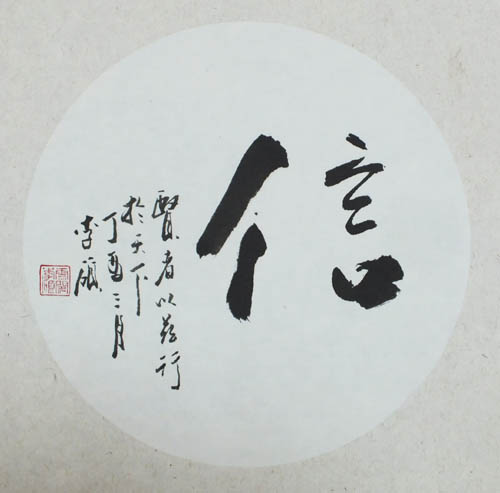 信
賢者以兹行
於天下
丁酉二月
李